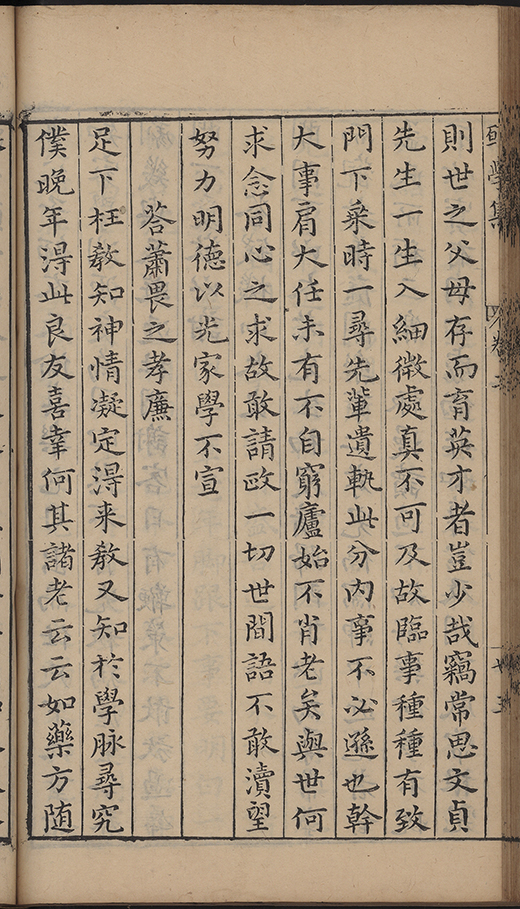 學集
卷五
十五
則世之父母存而育英才者豈少哉竊常思文貞
先生一生入細微處真不可及故臨事種種有致
門下乘時一尋先輩遺軌此分內事不必遜也幹
大事肩大任未有不自窮廬始不肖老矣與世何
求念同心之求故敢請政一切世間語不敢瀆望
努力明德以光家學不宣
荅蕭畏之孝廉
足下枉教知神情凝定得來教又知於學脉尋究
僕晚年得此良友喜幸何其諸老云云如藥方随